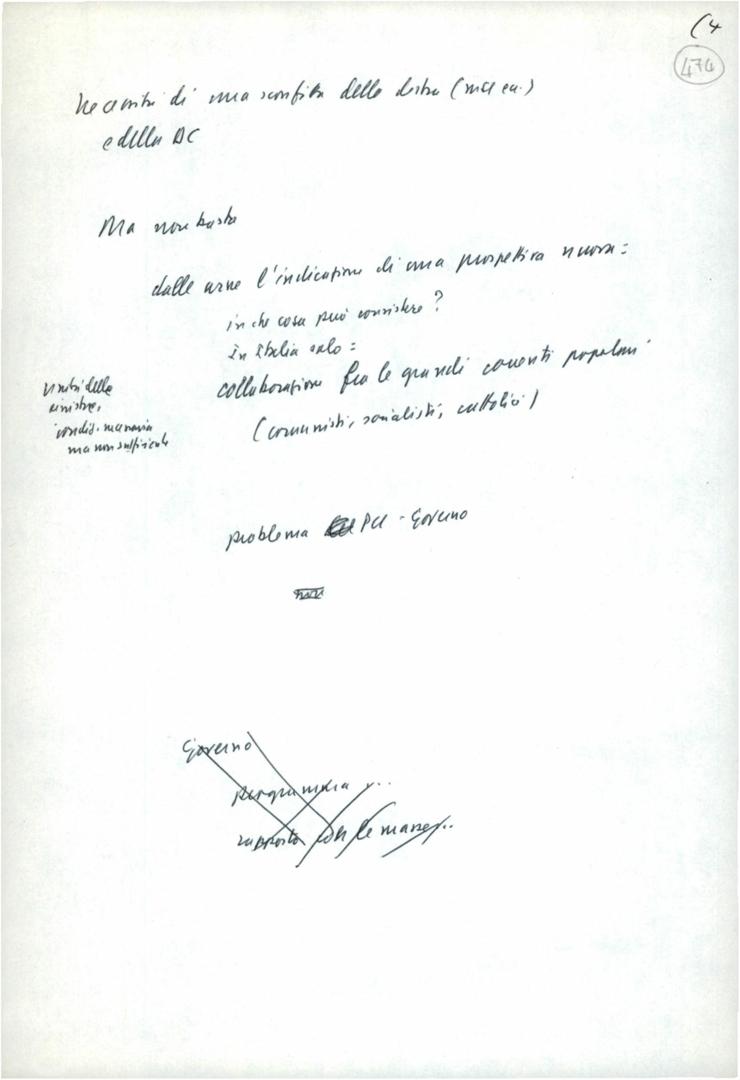 (4
474
Necessità di una sconfitta della destra (
e della DC
Ma non basta
dalle urne l'indicazione di una prospettiva nuova:
in che cosa può consistere?
in Italia solo:
collaborazione fra le grandi correnti popolari
(comunisti, socialisti, cattolici)
unità delle
sinistre,
condiz. necessaria
ma non sufficiente
problema PCI - Governo
Governo
programma ...
rapporto con le masse...